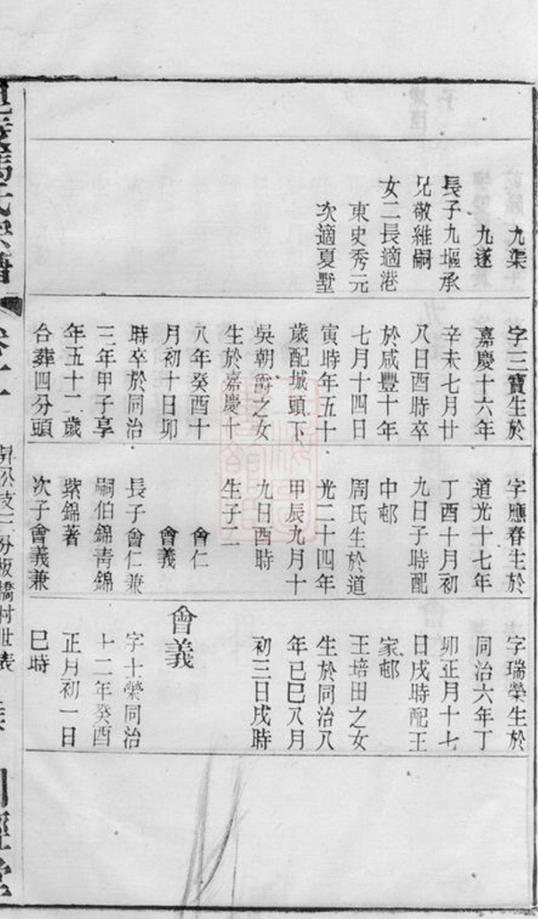 九渠
九遂
長子九堰承
兄敬維嗣
女二長適港
東史秀元
次適夏墅
字三寶生於
嘉慶十六年
辛未七月廿
八日酉時卒
於咸豐十年
七月十四日
寅時年五十
歲配城頭下
吳朝壽之女
生於嘉慶十
八年癸酉十
月初十日卯
時卒於同治
三年甲子享
年五十二歲
合葬四分頭
字應春生於
道光十七年
丁酉十月初
九日子時配
中邨
周氏生於道
光二十四年
甲辰九月十
九日酉時
生子二
會仁
會義
長子會仁兼
嗣伯錦青錦
紫錦著
次子會義兼
字瑞榮生於
同治六年丁
卯正月十七
日戌時配王
家邨
王培田之女
生於同治八
年己巳八月
初三日戌時
會義
字士榮同治
十二年癸酉
正月初一日
巳時
公支三分板橋村世表